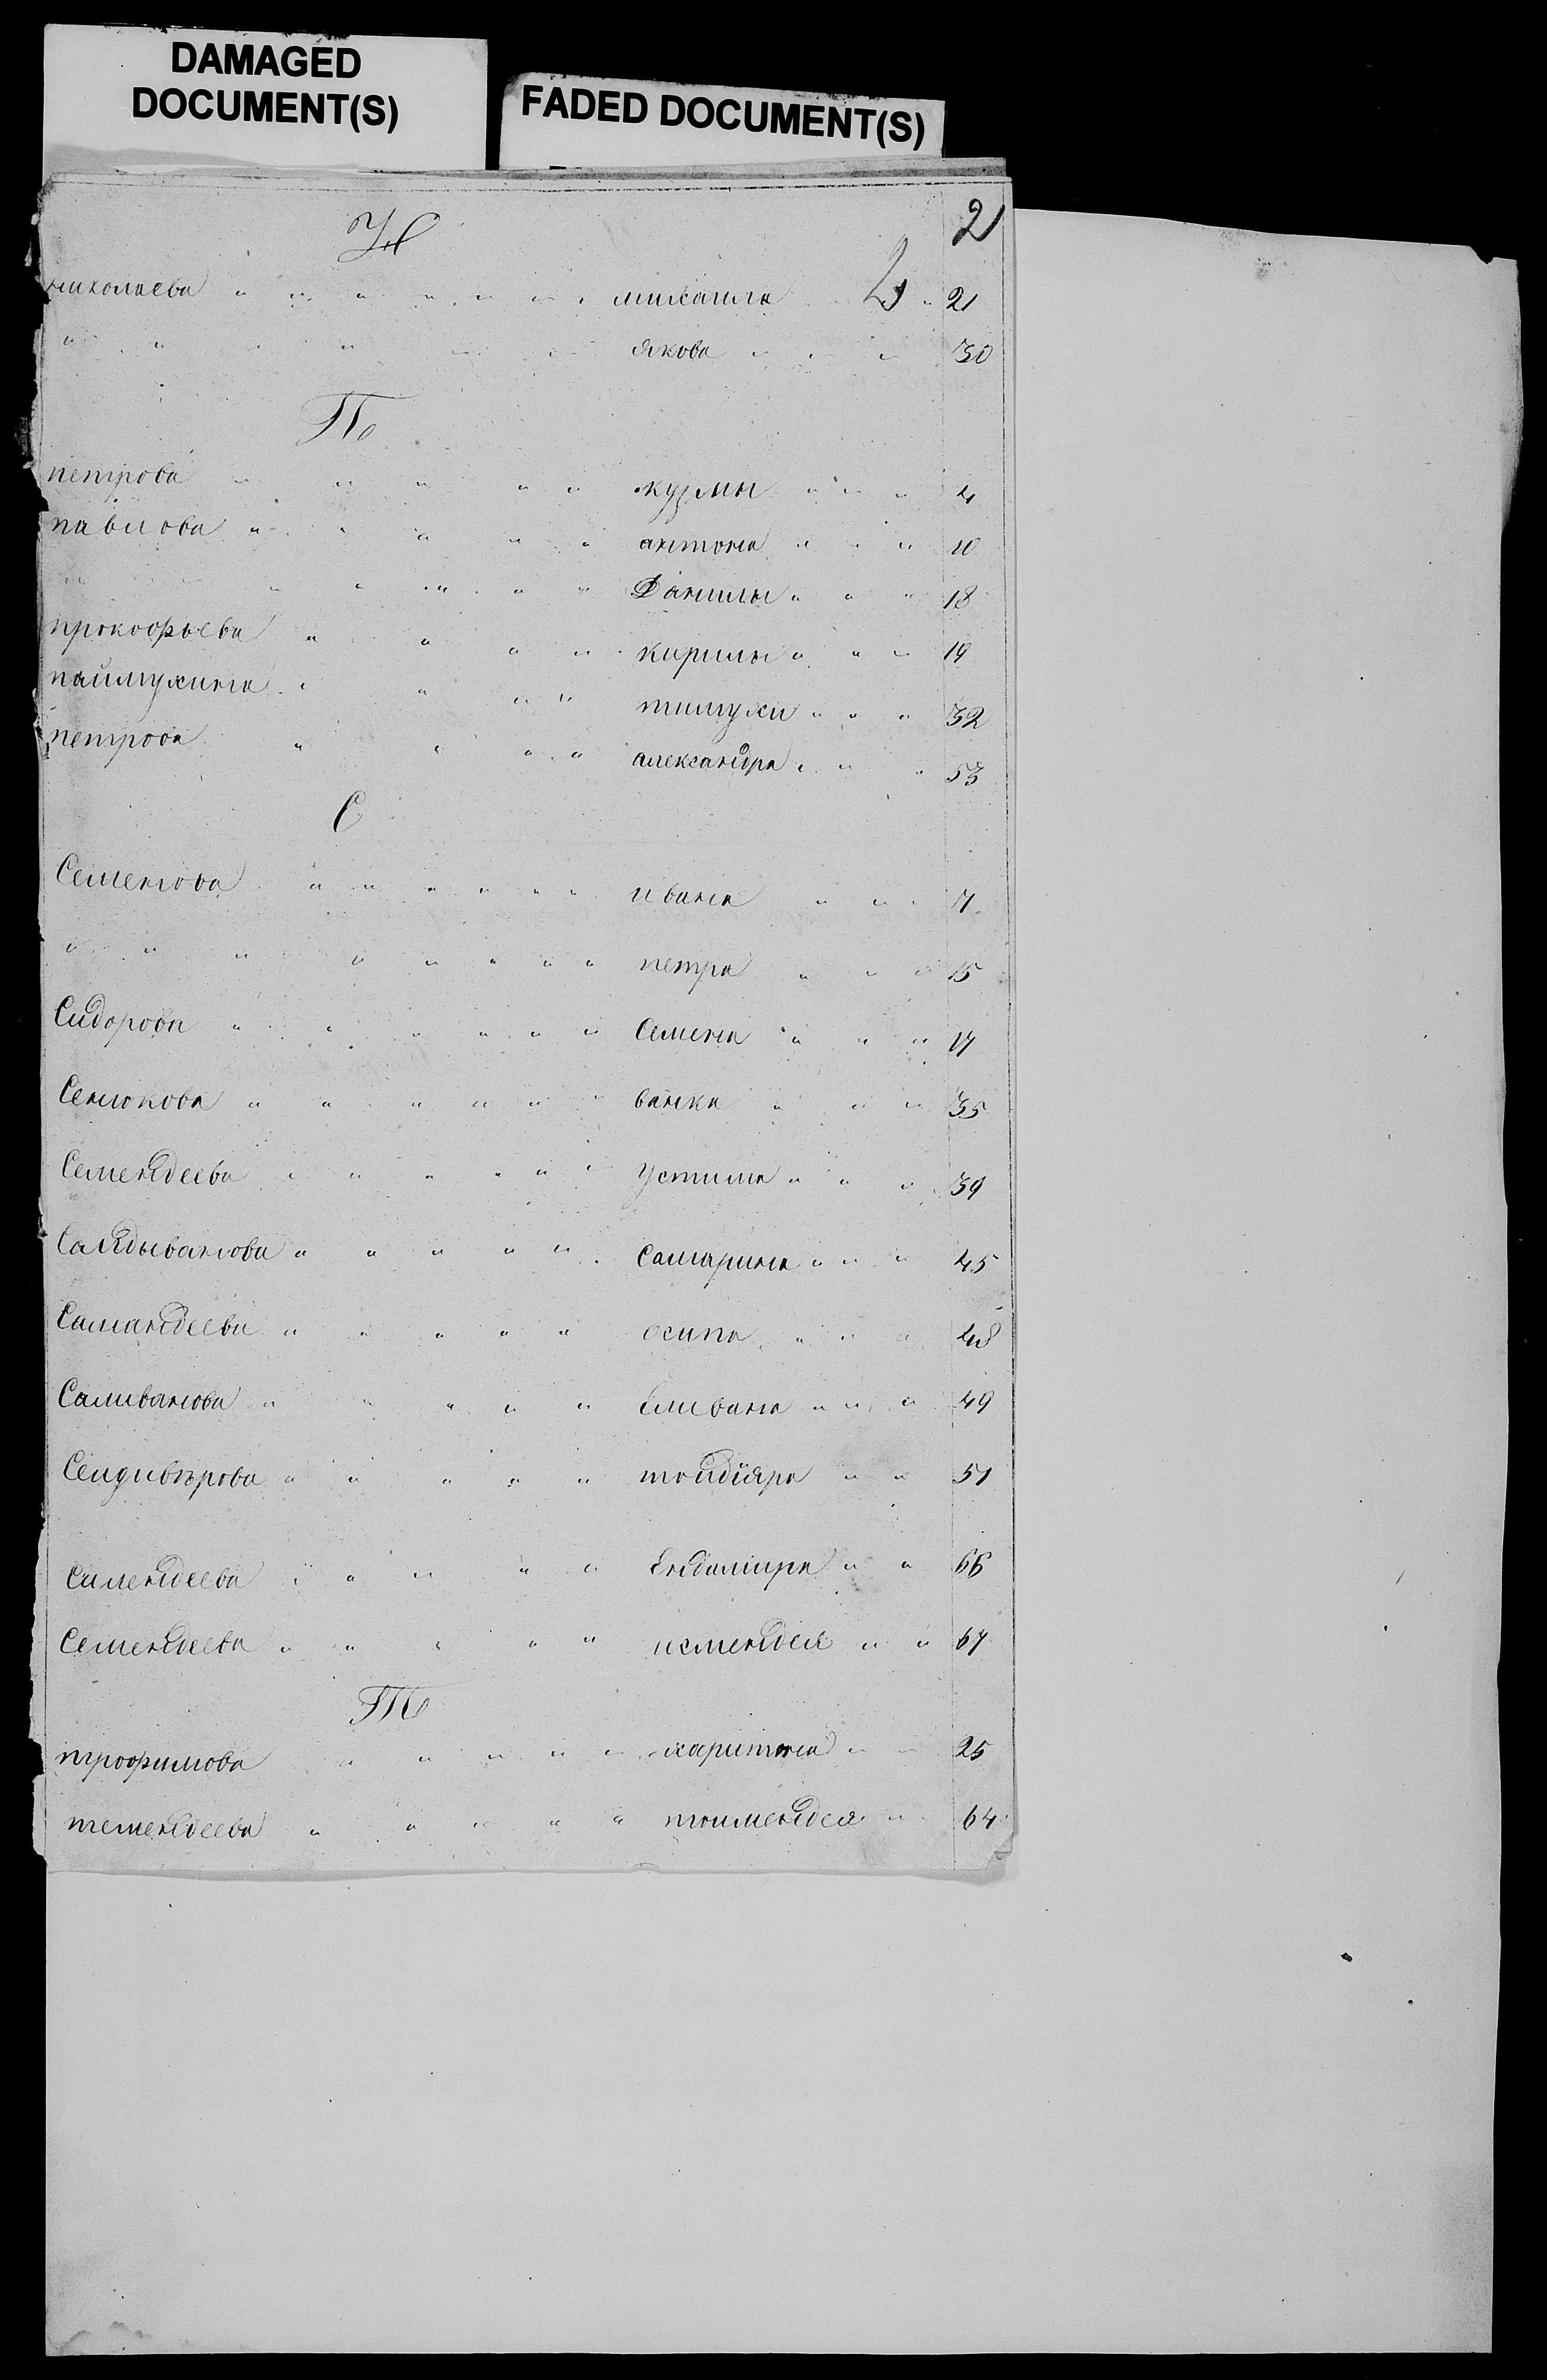 DAMAGED
DOCUMENT(S)
FADED DOCUMENT(S)
2
Н
николаева " " " " " " михаила " 21
" " " " " " якова " " " 30
П
петрова " " " " " кузмы " " " 4
павлова " " " " " антона " " " 10
" " " " " " Данилы " " " 18
прокофьева " " " " кирилы " " " 19
паимухина " " " " тимухи " " " 32
петрова " " " " александра " " " 53
С
Семенова " " " " " " ивана " " " 7
" " " " " " " " петра " " " 15
Сидорова " " " " " " Семена " " " 17
Сенюкова " " " " " " ванка " " " 35
Семендеева " " " " " " устима " " " 39
Салдыванова " " " " " " самарина " " " 45
Самандеева " " " " " осипа " " " 48
Саливанова " " " " " Еливана " " " 49
" " " " " тойдіяра " " 51
Силендеева " " " " " Ендиміра " " 66
Семендеева " " " " " исмендея " " 67
Т
трофимова " " " " " харитона " " 25
темендеева " " " " " тоимендея " 64